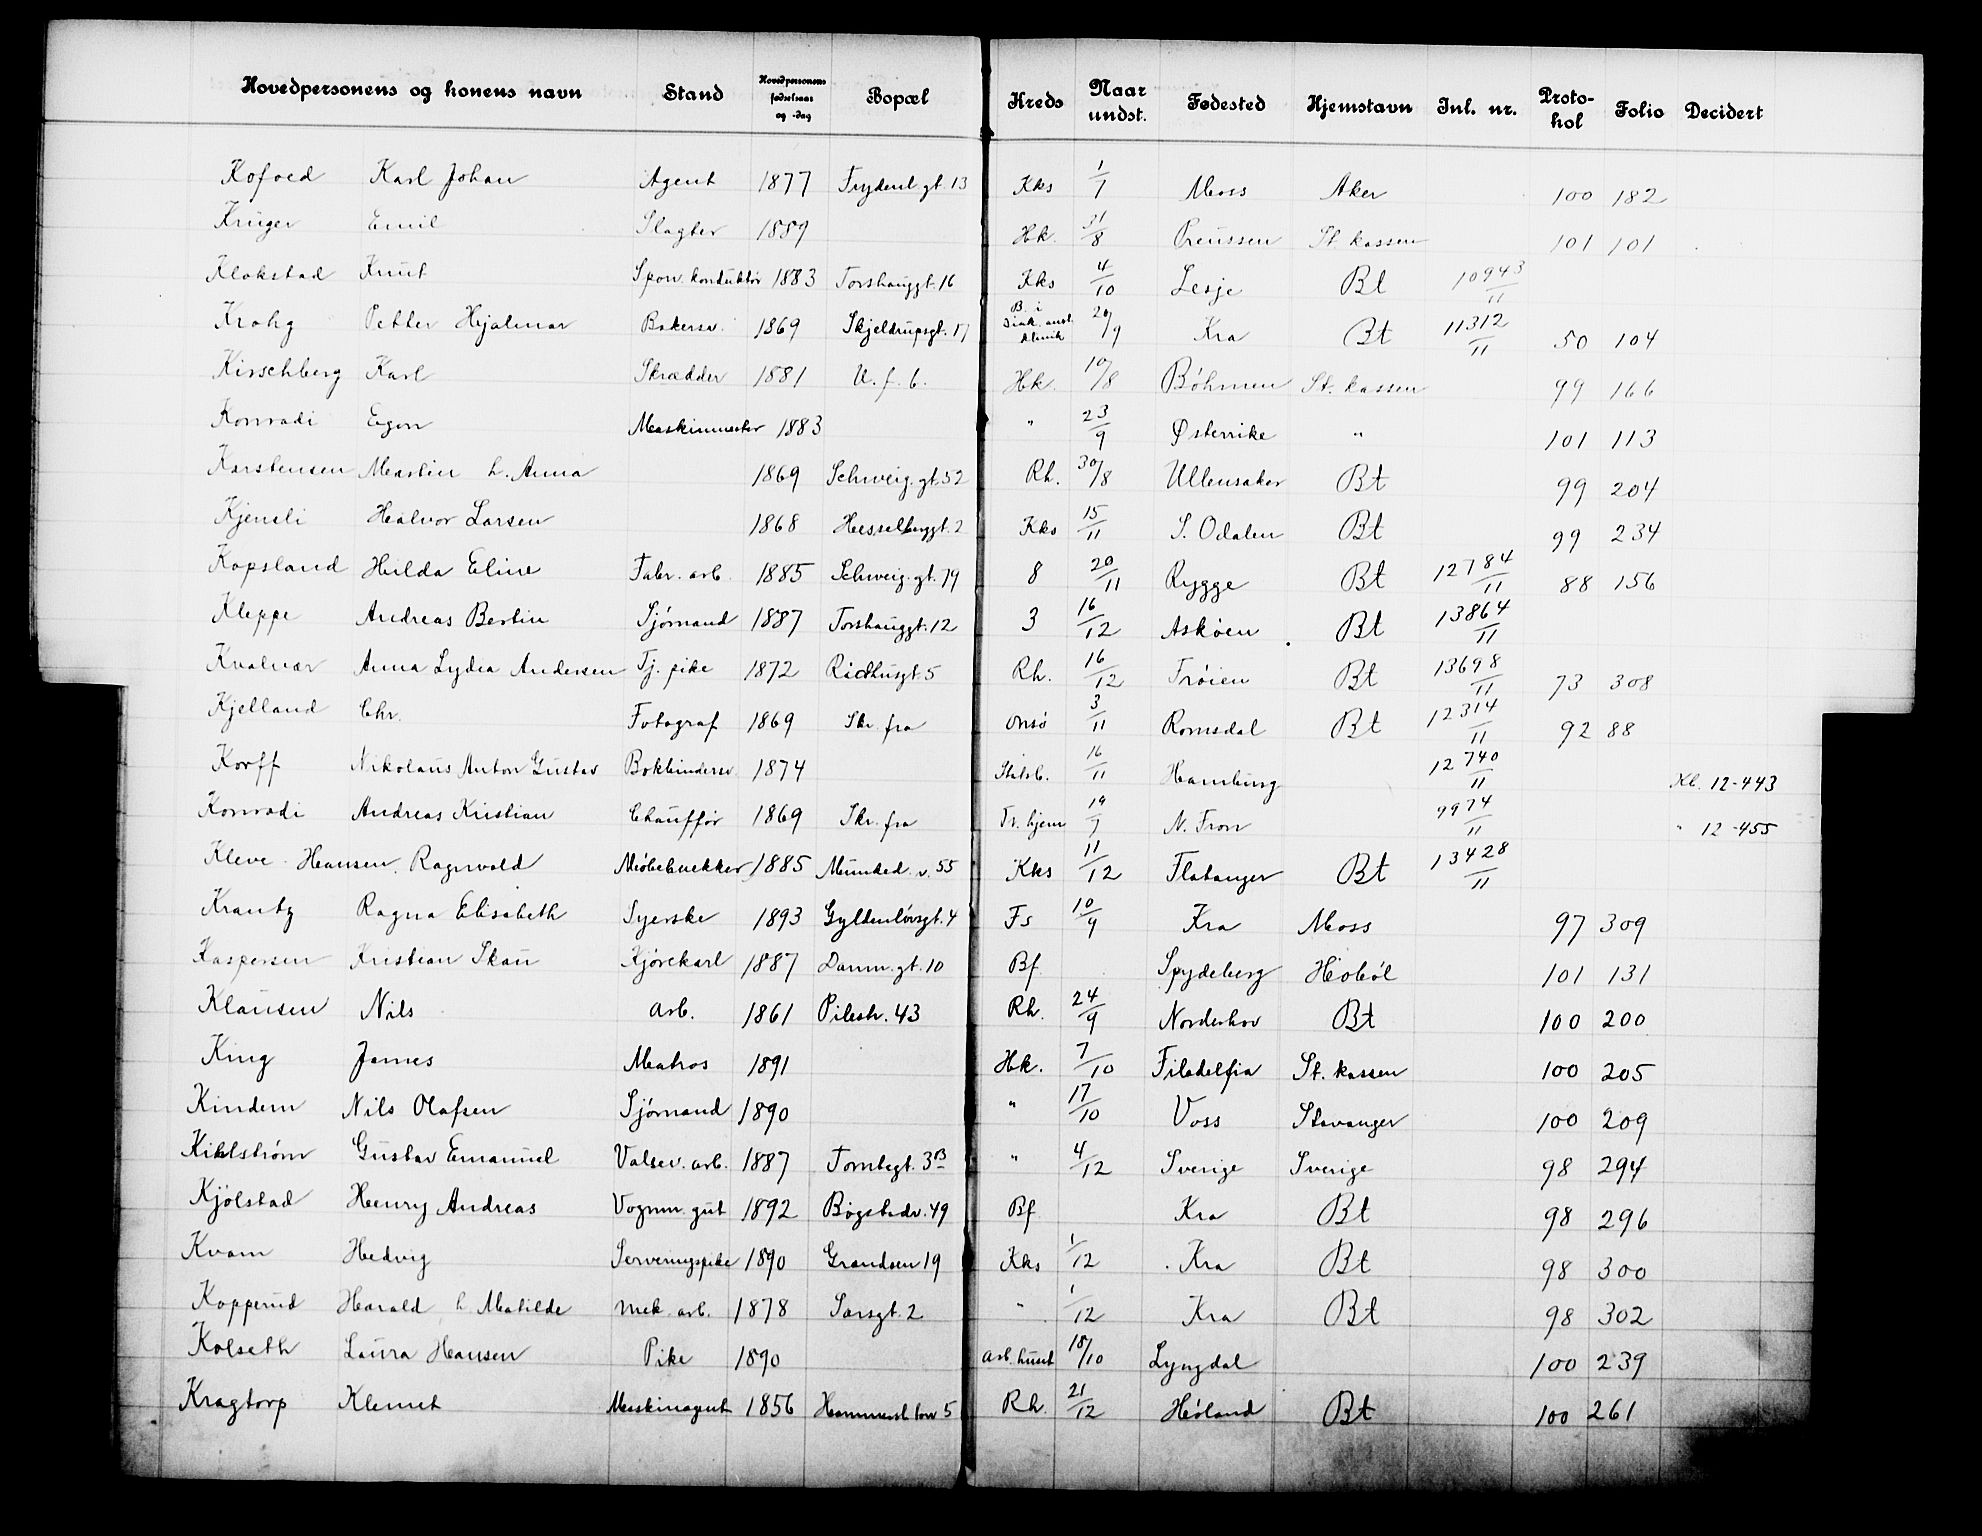 Hovedpersonens og konens navn Stand Hovedpersonens fødselsaar og -dag Bopæl Kreds Naar undst. Fødested Hjemstavn Inl. nr. Proto-kol Folio Decidert
Kofoed Karl Johan Agent 1877 Frydenl. gt. 13 Kks 1/7 Moss Aker 100 182
Krüger Emil Slagter 1889 Hk. 31/8 Preussen St. kassen 101 101
Klokstad Knut Sporv. konduktør 1883 Torshauggt. 16 Kks 4/10 Lesje Bt 10943/11
Krohg Petter Hjalmar Bakersv. 1869 Skjeldrupsgt. 17 B. i Diak. anst. klinik 20/9 Kra Bt 11312/11 50 104
Kirschberg Karl Skrædder 1881 U. f. b. Hk. 10/8 Bøhmen St. kassen 99 166
Konradi Egon Maskinmester 1883 " 23/9 Østerrike " 101 113
Karstensen Martin h. Anna 1869 Schweig. gt. 52 Rh. 30/8 Ullensaker Bt 99 204
Kjensli Halvor Larsen 1868 Hesselberggt. 2 Kks 15/11 S. Odalen Bt 99 234
Kopsland Hilda Eline Fabr. arb. 1885 Schweig. gt. 79 8 20/11 Rygge Bt 12784/11 88 156
Kleppe Andreas Bertin Sjømand 1887 Torshauggt. 12 3 16/12 Askøen Bt 13864/11
Kvalvær Anna Lydia Andersen Tj. pike 1872 Rådhusgt. 5 Rh. 16/12 Frøien Bt 13698/11 73 308
Kjelland Chr. Fotograf 1869 Skr. fra Onsø 3/11 Romsdal Bt 12314/11 92 88
Korff Nikolaus Anton Gustav Bokbindersv. 1874 Statsb. 16/11 Hamburg 12740/11 Kl. 12-443
Konradi Andreas Kristian Chauffør 1869 Skr. fra Tr. hjem 19/7 N. Fron 9974/11 " 12-455
Kleve-Hansen, Ragnvald Møbelsnekker 1885 Munked. v. 55 Kks 11/12 Flatanger Bt 13428/11
Krantz Ragna Elisabeth Syerske 1893 Gyldenløvsgt. 4 Fs 10/9 Kra Moss 97 309
Kaspersen Kristian Skau Kjørekarl 1887 Damm. gt. 10 Bf. Spydeberg Hobøl 101 131
Klausen Nils Arb. 1861 Pilestr. 43 Rh. 24/9 Norderhov Bt 100 200
King James Matros 1891 Hk. 7/10 Filadelfia St. kassen 100 205
Kindem Nils Olafsen Sjømand 1890 " 17/10 Voss Stavanger 100 209
Kihlstrøm Gustav Emanuel Valsev. arb. 1887 Tomtegt. 3B " 4/12 Sverige Sverige 98 294
Kjølstad Henry Andreas Vognm. gut 1892 Bogstadv. 49 Bf. Kra Bt 98 296
Kvam Hedvig Serveringspike 1890 Grandsen 19 Kks 1/12 Kra Bt 98 300
Kopperud Harald h. Matilde Mek. arb. 1878 Sarsgt. 2 " 1/12 Kra Bt 98 302
Kolseth Laura Hansen Pike 1890 Arb. huset 18/10 Lyngdal 100 239
Kragtorp Klemet Maskinagent 1856 5 Rh. 21/12 Høland Bt 100 261